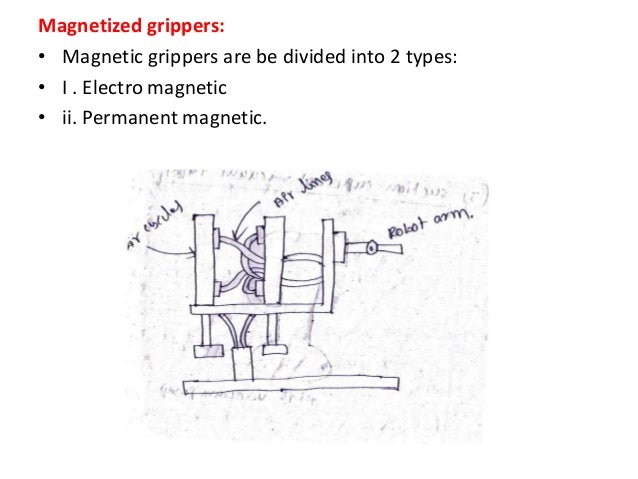 Magnetized grippers:
• Magnetic grippers are be divided into 2 types:
• I . Electro magnetic
• ii. Permanent magnetic.
Air lines
Robot arm.